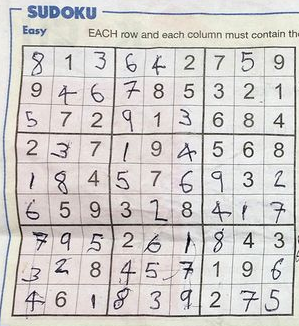 SUDOKU
Easy EACH row and each column must contain th
8 1 3 6 4 2 7 5 9
9 4 6 7 8 5 3 2 1
5 7 2 9 1 3 6 8 4
2 3 7 1 9 4 5 6 8
1 8 4 5 7 6 9 3 2
6 5 9 3 2 8 4 1 7
7 9 5 2 6 1 8 4 3
3 2 8 4 5 7 1 9 6
4 6 1 8 3 9 2 7 5